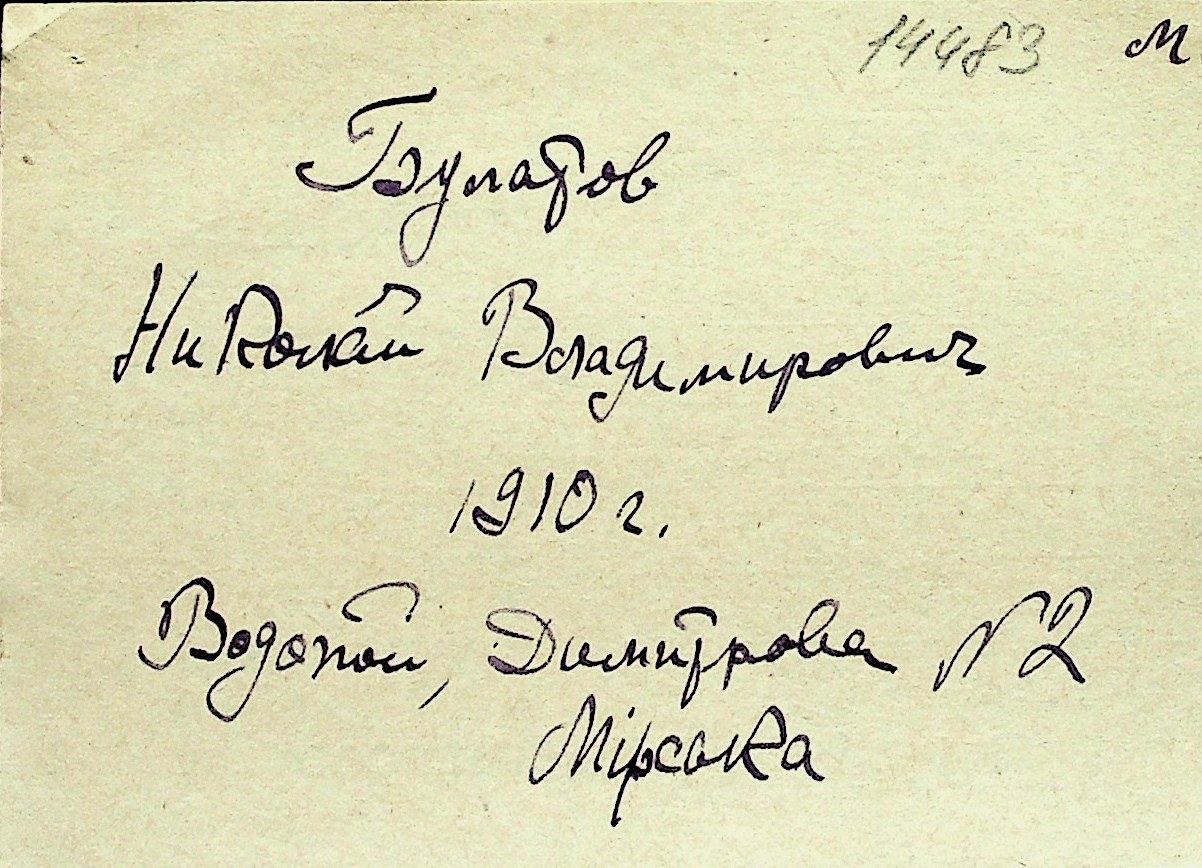 14483 М
Булатов
Николай Владимирович
1910 г.
Водопой, Димитрова N 2
Мірсока